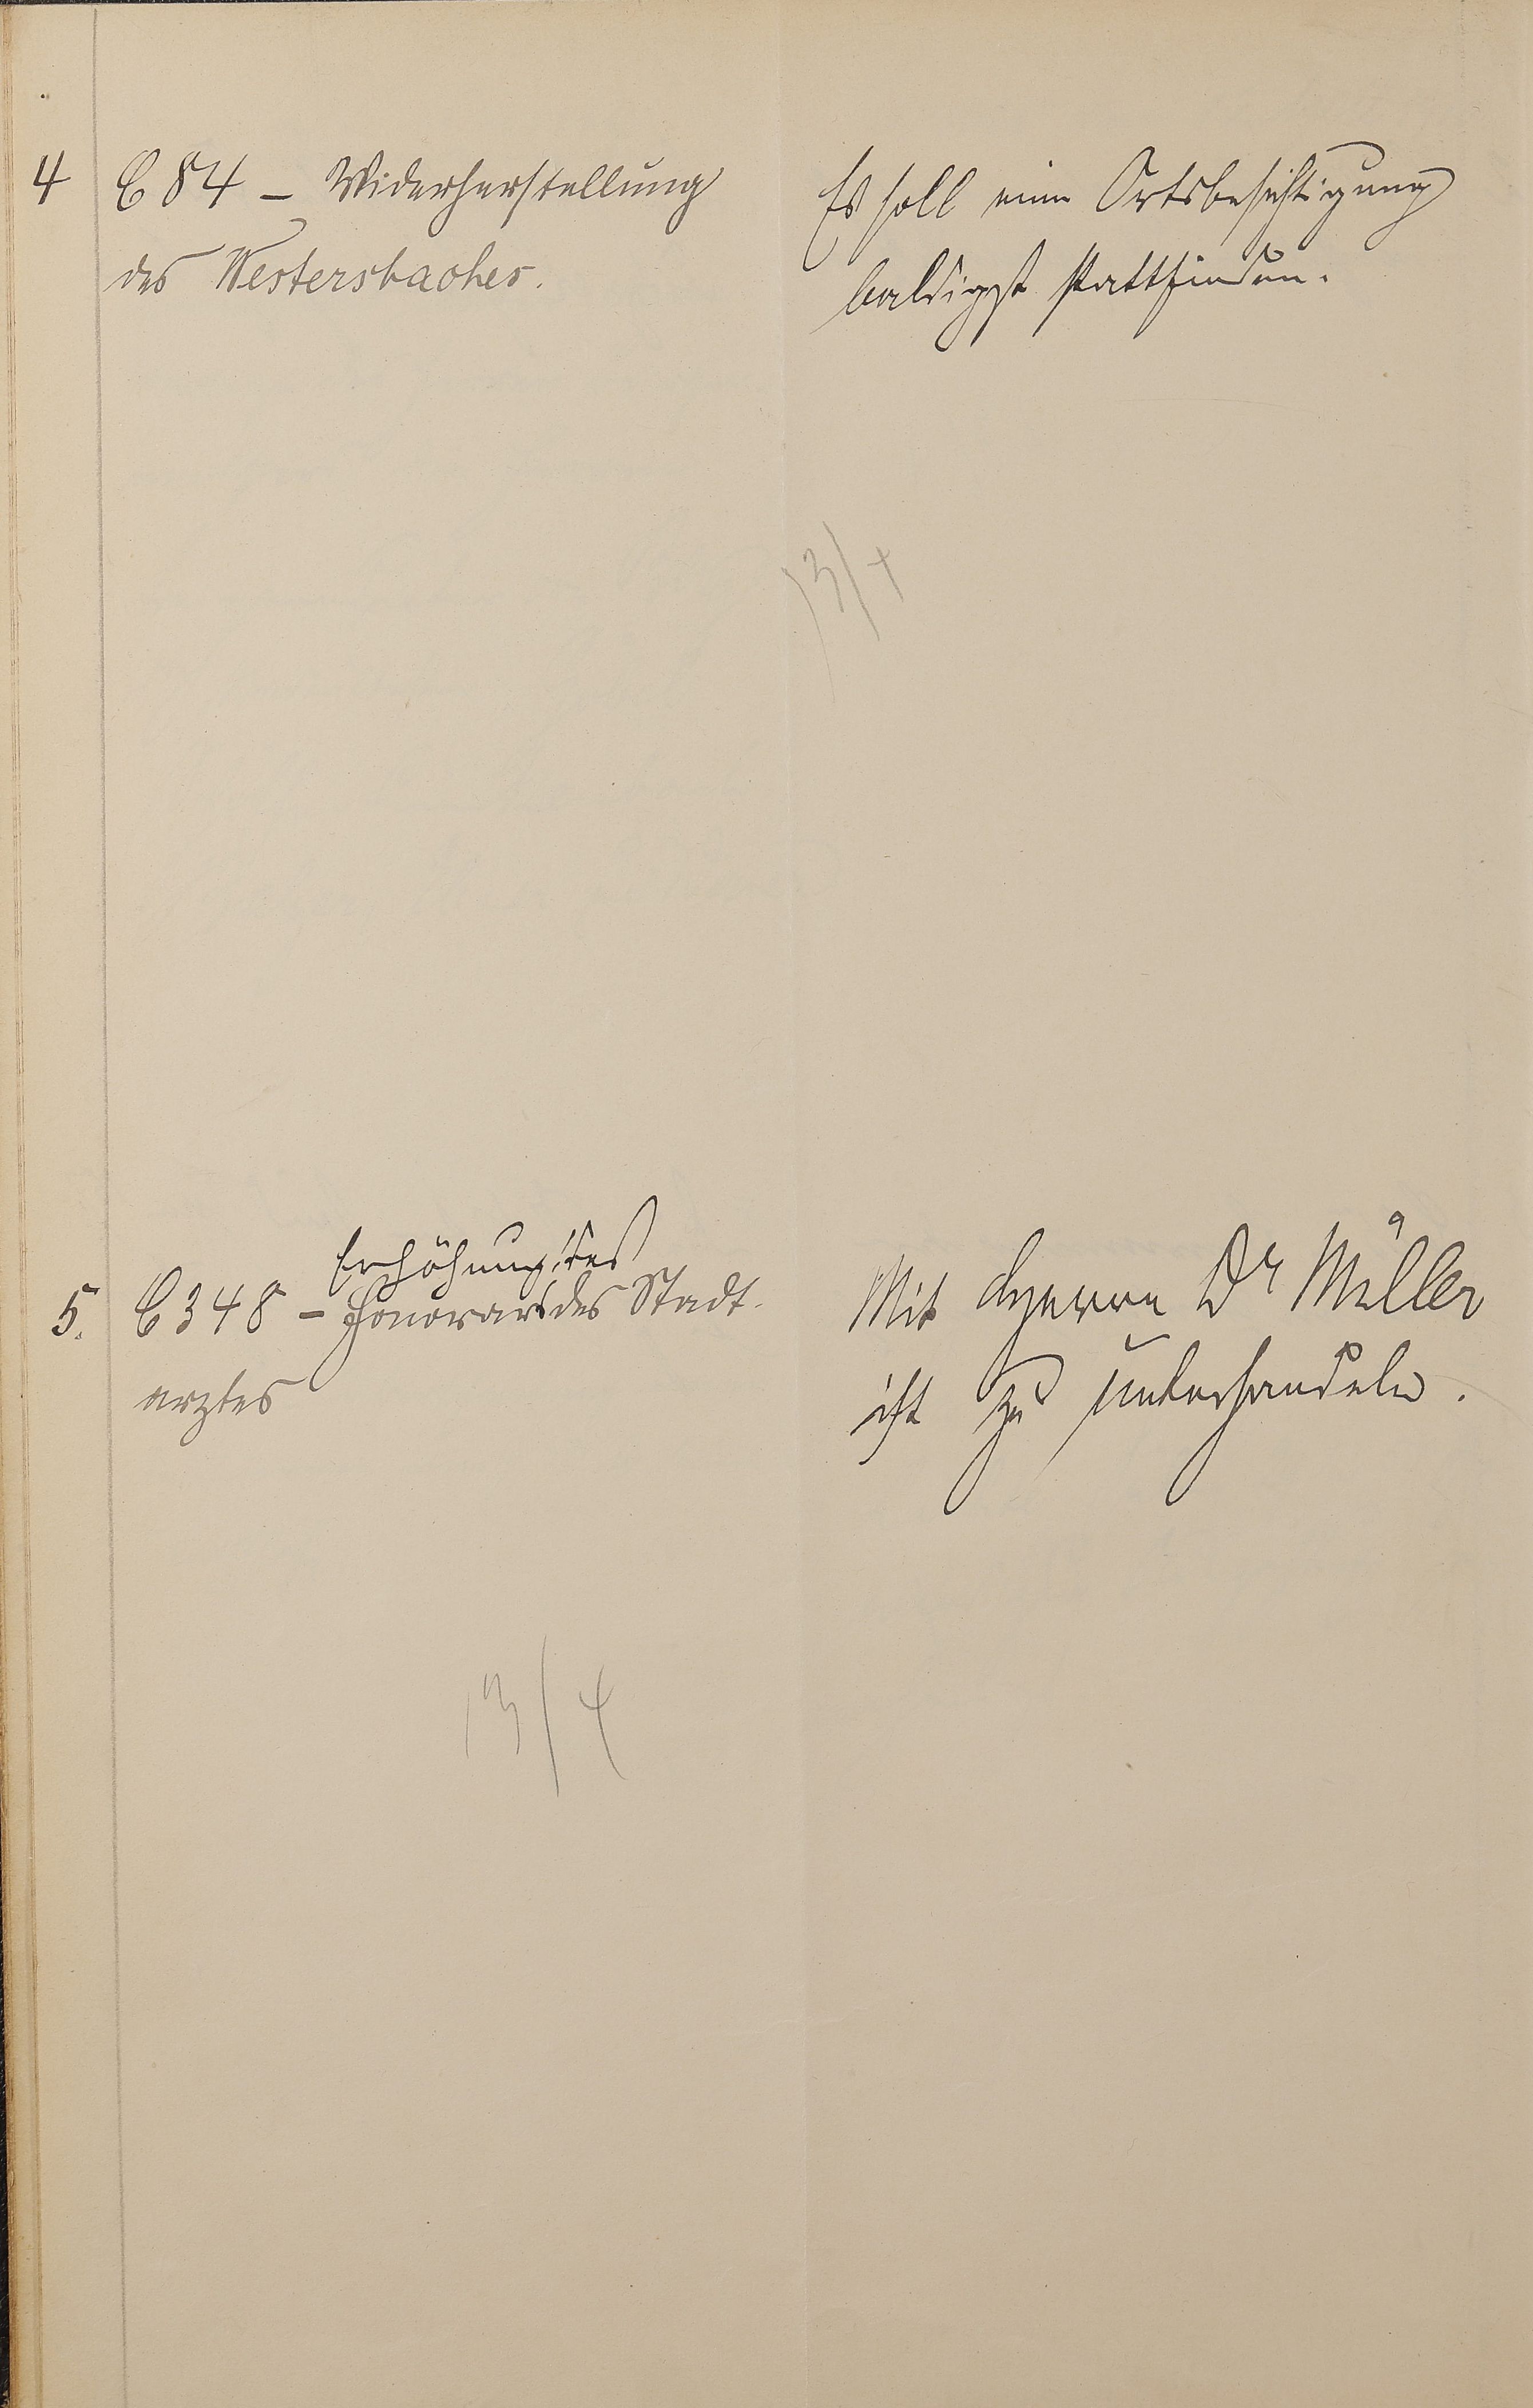 4 C 84 - Widerherstellung
des Westersbaches.
Es soll eine Ortsbesichtigung
baldigst stattfinden.
13/4
Erhöhung des
5. C 348 - Honorars des Stadt-
arztes
Mit Herrn Dr Müller
ist zu unterhandeln.
13/4